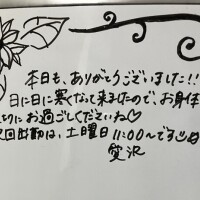 本日も、ありがとうございました!!
日に日に寒くなって来ましたので、お身体
切にお過ごしくださいね♡
回出勤は、土曜日 11:00〜です
愛沢